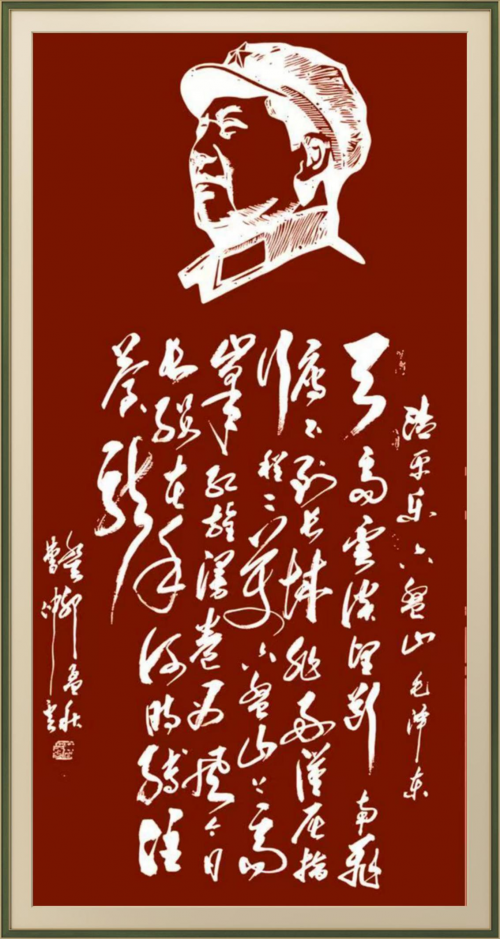 清平乐六盘山毛泽东
天高雲淡望断南飛
雁不到长城非好漢屈指
行程二萬六盘山上高
峯红旗漫卷西风今日
长缨在手何时缚住
苍龙